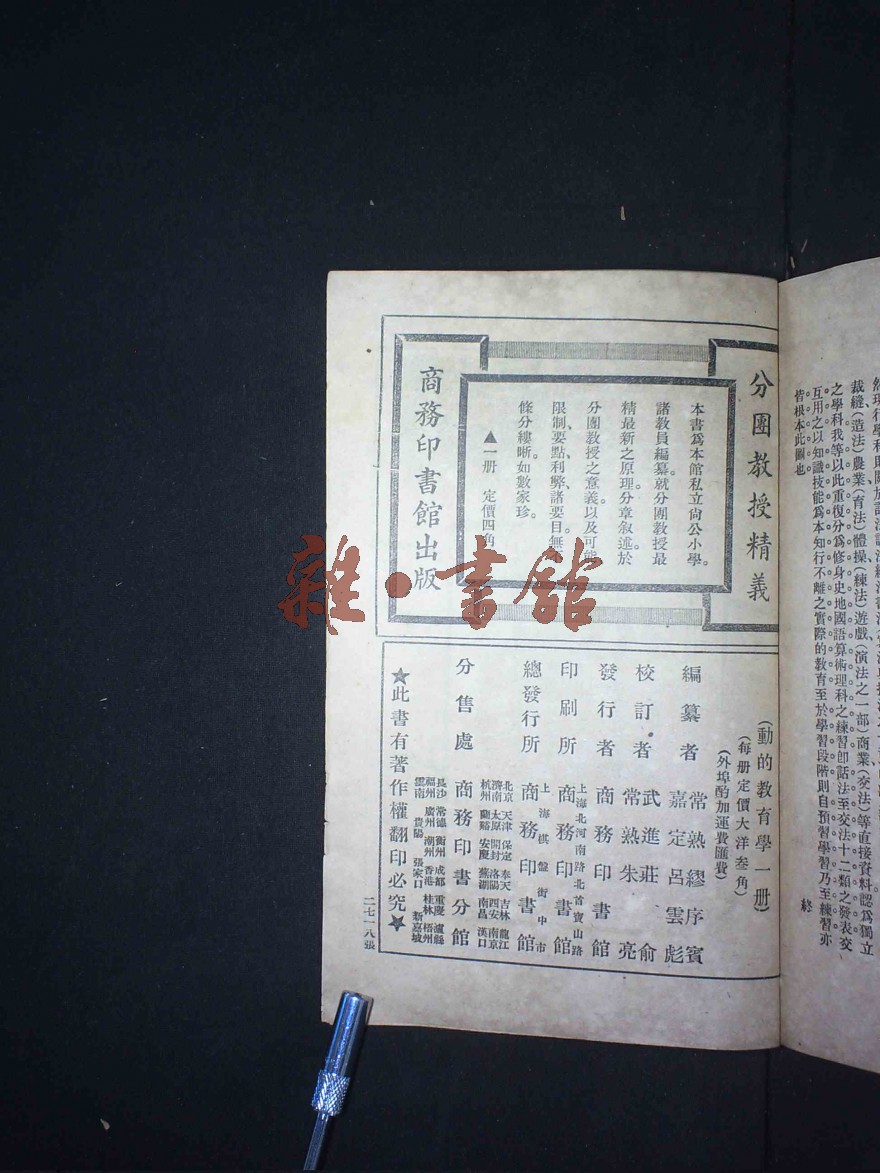 裁縫(造法)農業(育法)體操(練法)遊戲(演法之一部)商業(交法)等直接資料認爲獨立
之學科我等以此重復分爲修身史地國語算術理科之練習卽話法至交法十二類之發表交
互用之以知識技能爲本知行不離之實際的教育至於學習段階則自預習學習乃至練習亦
皆根本此圖也。
終
分團教授精義
本書爲本館私立尚公小學。
諸教員編纂。就分團教授最
精最新之原理。分章叙述於
分團教授之意義以及可能
限制、要點、利弊、諸要目。無
條分縷晰。如數家珍。
▲一册 定價四角
商務印書館出版
(動的教育學一册)
(每册定價大洋叁角)
(外埠酌加運費匯費)
編纂者 常熟繆序賓
嘉定呂雲彪
校訂者 武進莊俞
常熟朱亮
發行者 商務印書館
印刷所 上海北河南路北首寶山路
商務印書館
總發行所 上海棋盤街中市
商務印書館
分售處 商務印書分館
北京 天津 保定 奉天 吉林 龍江
濟南 太原 開封 洛陽 西安 南京
杭州 蘭谿 安慶 蕪湖 南昌 漢口
長沙 常德 衡州 成都 重慶 瀘縣
福州 廣州 潮州 香港 桂林 梧州
雲南 貴陽 張家口 新嘉坡
★此書有著作權翻印必究★
二七一八張
雜·書館